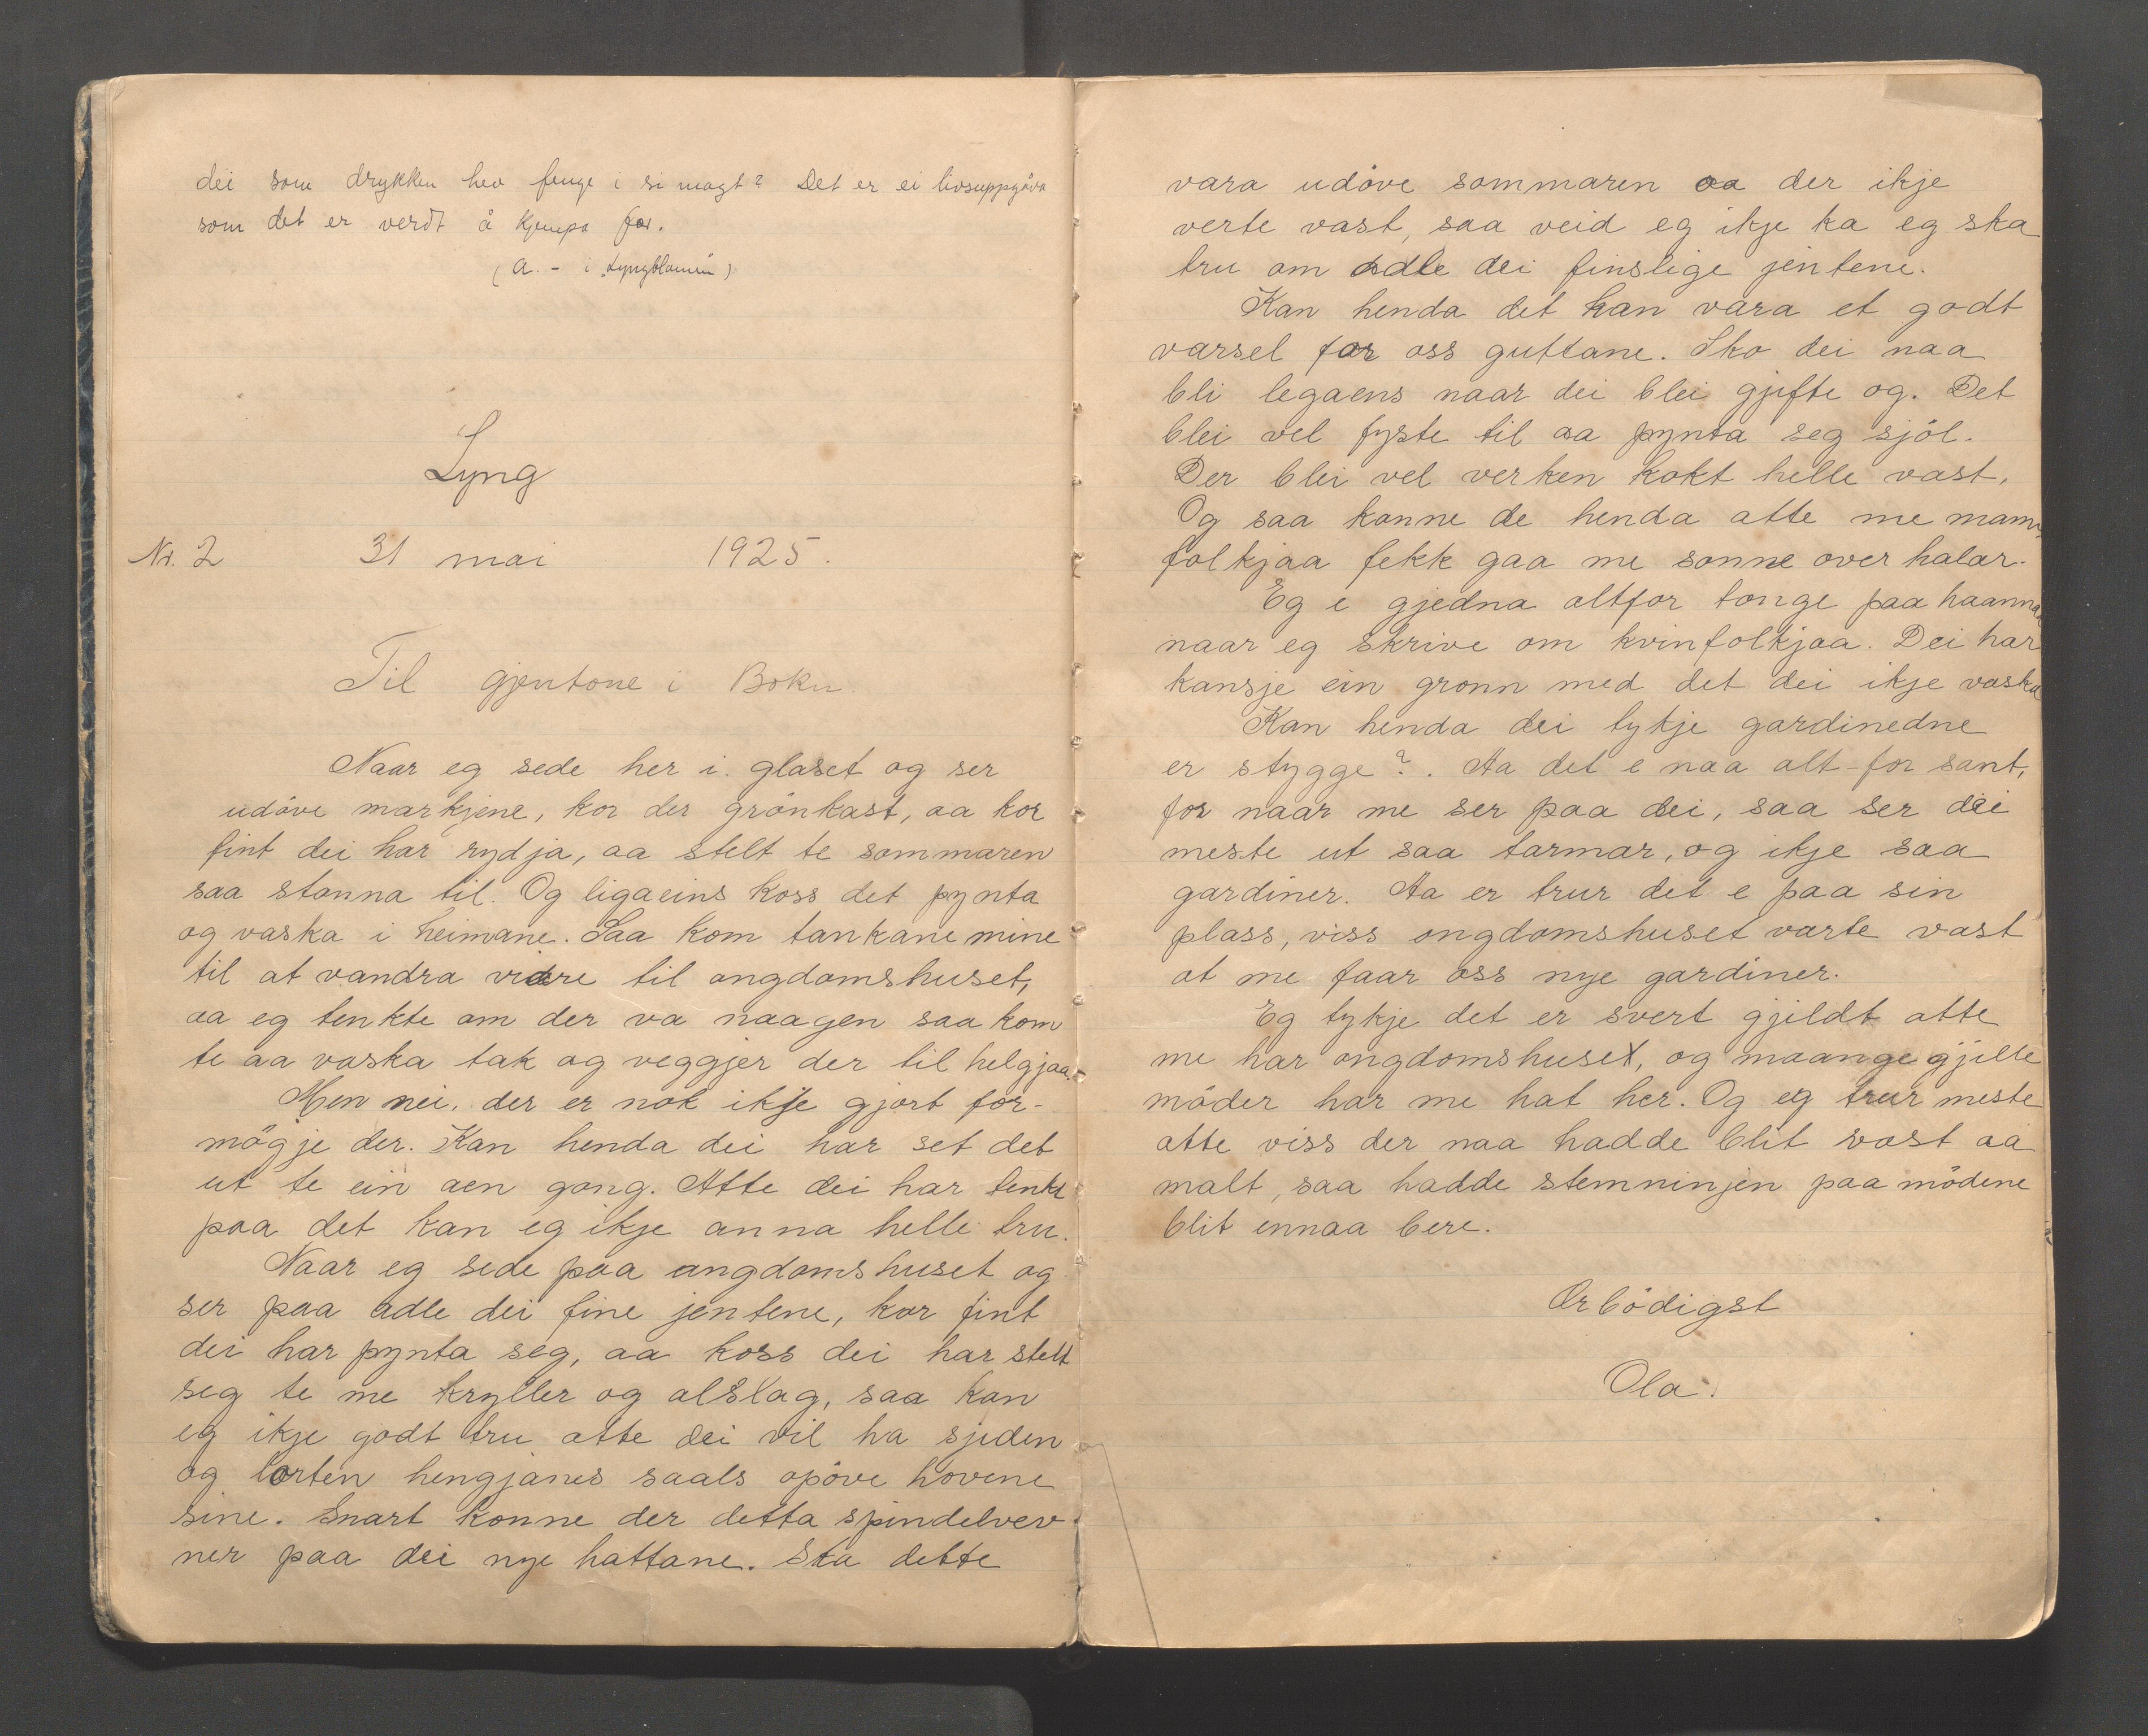 dei som drykken hev fenge i si magt? Det er ei livsuppgåva
som det er verdt å kjempa for.
(A. - i "Lyngblomen")
Lyng
Nr. 2 31 mai 1925.
Til gjentone i Bokn
Naar eg sede her i glaset og ser
udöve markjene, kor der grönkast, aa kor
fint dei har rydja, aa stelt te sommaren
saa stonna til. Og ligaeins koss det pynta
og vaska i heimane. Saa kom tankane mine
til at vandra vidare til ongdomshuset,
aa eg tenkte om der va naagen saa kom
te aa vaska tak og veggjer der til helgjaa.
Men nei, der er nok ikje gjort for-
mögje der. Kan henda dei har set det
ut te ein aen gong. Atte dei har tenkt
paa det kan eg ikje anna helle tru.
Naar eg sede paa ongdomshuset og
ser paa adle dei fine jentene, kor fint
dei har pynta seg, aa koss dei har stelt
seg te me kryller og alslag, saa kan
eg ikje godt tru atte dei vil ha sjiden
og lorten hengjanes saals opöve hovene
sine. Snart konne der detta spindelvev-
ner paa dei nye hattane. Ska dette
vara udöve sommaren aa der ikje
verte vast, saa veid eg ikje ka eg ska
tru om adle dei finslige jentene.
Kan henda det kan vara et godt
varsel for oss guttane. Sko dei naa
bli legaens naar dei blei gjifte og. Det
blei vel fyste til aa pynta seg sjöl.
Der blei vel verken kokt helle vast.
Og saa konne de henda atte me mann-
folkjaa fekk gaa me sonne over halar.
Eg e gjedna altfor tonge paa haanna
naar eg skrive om kvinfolkjaa. Dei har
kansje ein gronn med det dei ikje vaska
Kan henda dei tykje gardinedne
er stygge?. Aa det e naa alt-for sant,
for naar me ser paa dei, saa ser dei
meste ut saa tarmar, og ikje saa
gardiner. Aa er trur det e paa sin
plass, viss ongdomshuset varte vast
at me faar oss nye gardiner.
Eg tykje det er svert gjildt atte
me har ongdomshuset, og maange gjille
möder har me hat her. Og eg trur meste
atte viss der naa hadde blit vast aa
malt, saa hadde stemninjen paa mödene
blit ennaa bere.
Örbödigst
Ola.